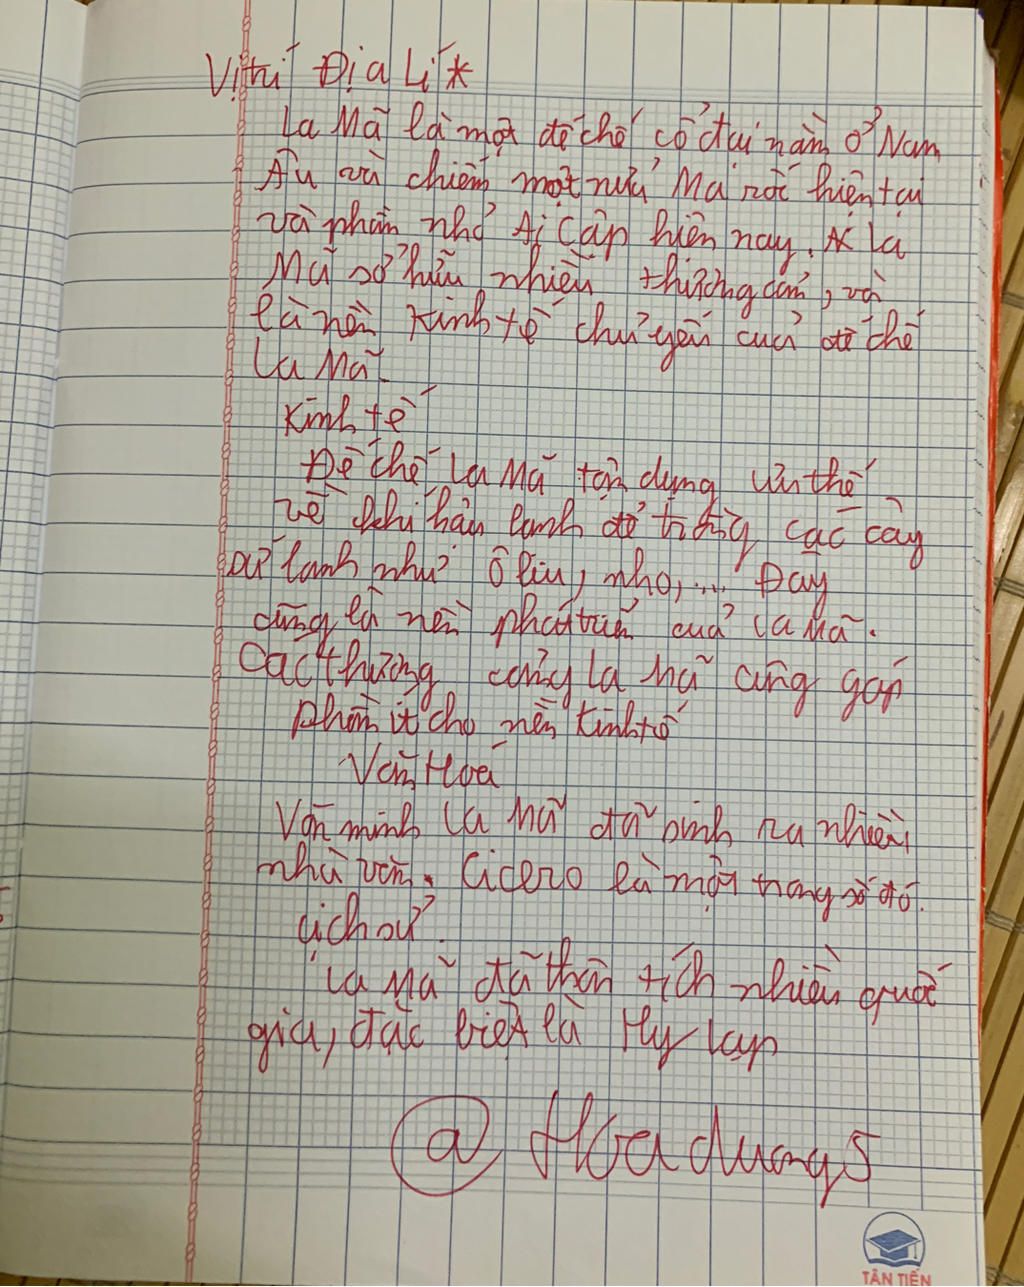 Vị trí Địa Lí *
La Mã là một đế chế cổ đại nằm ở Nam
Âu và chiếm một nửa Ma rốc hiện tại
và phần nhỏ Ai Cập hiện nay. La
Mã sở hữu nhiều thương cản, và
là nền kinh tế chủ yếu của đế chế
La Mã.
Kinh tế
Đế chế La Mã tận dụng ưu thế
về khí hậu lanh để trồng các cây
xứ lanh như ô liu, nho, ... Đây
cũng là nền phát triển của La Mã.
Các thương cảng La Mã cũng góp
phần ít cho nền kinh tế
Văn Hoá
Văn minh La Mã đã sinh ra nhiều
nhà văn. Cicero là một trong số đó.
Lịch sử.
La Mã đã thôn tích nhiều quốc
gia, đặc biệt là Hy Lạp
@ Hoa duong5
TÂN TIẾN